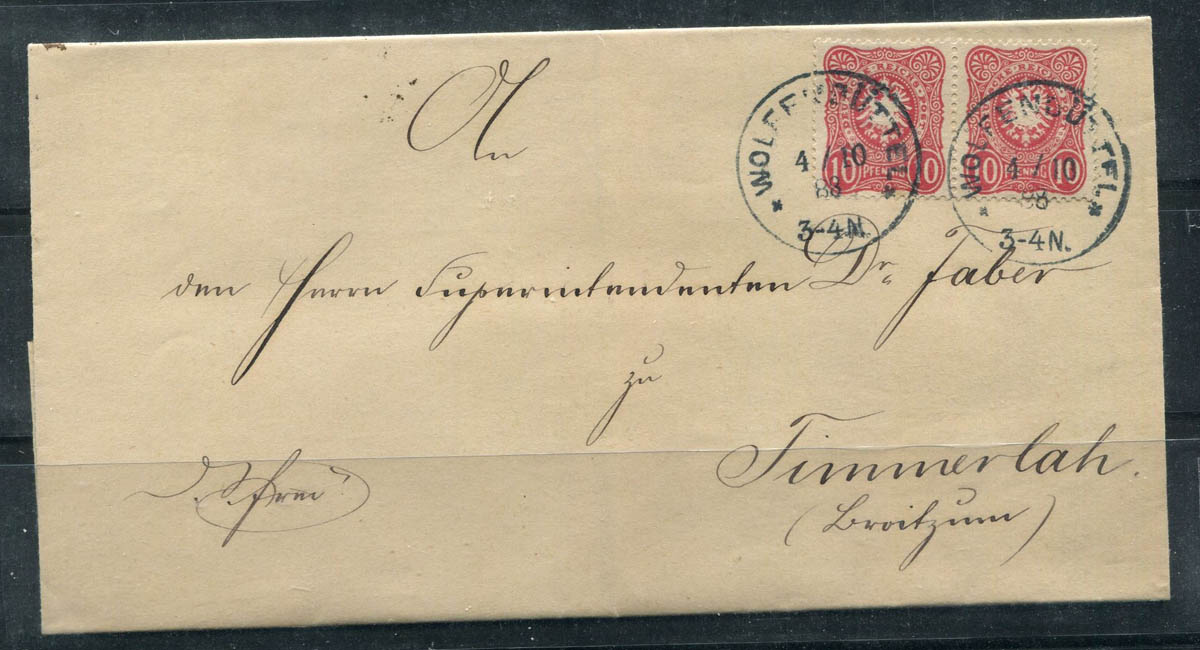 WOLFENBÜTTEL
4/10
88
3-4N.
WOLFENBÜTTEL
4/10
88
3-4N.
REICHS
10 PFENNIG 10
10 PFENNIG 10
An
den Herrn Superintendenten Dr Faber
zu
Timmerlah.
(Broitzum)
frei